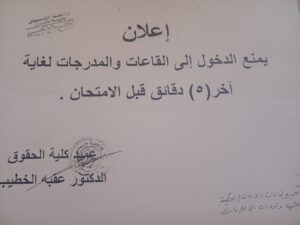 إعلان
يمنع الدخول إلى القاعات والمدرجات لغاية
آخر (٥) دقائق قبل الامتحان .
عميد كلية الحقوق
الدكتور عقبه الخطيب